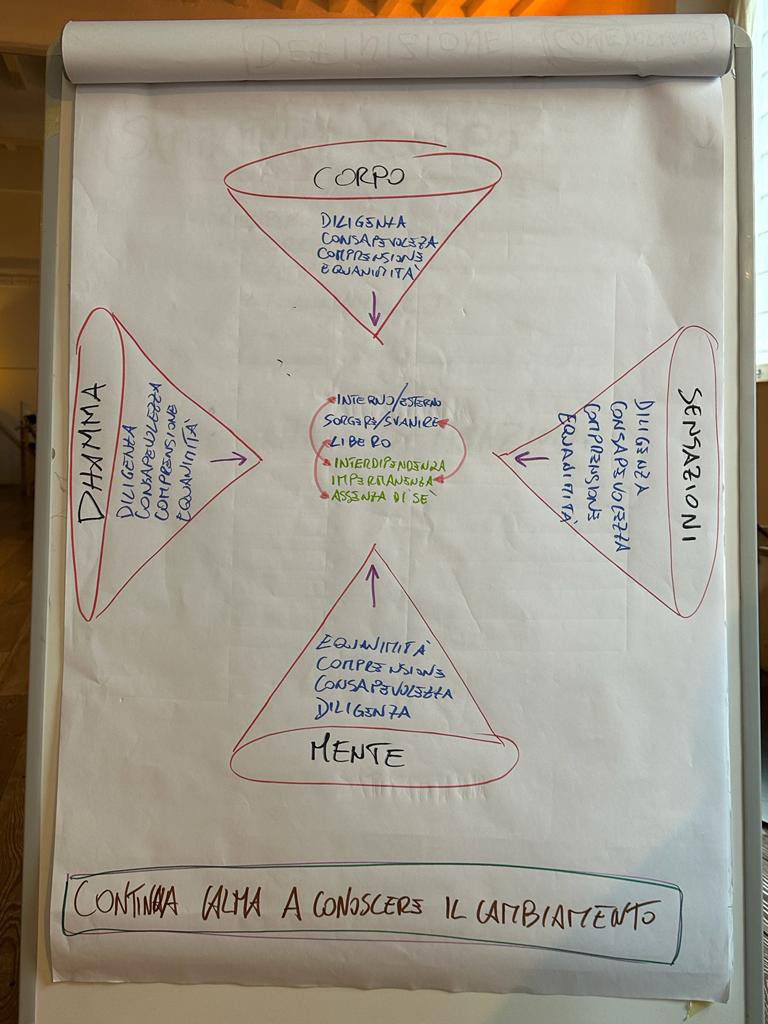 DEFINIZIONE COME
CORPO
DILIGENZA
CONSAPEVOLEZZA
COMPRENSIONE
EQUANIMITÀ
DHAMMA
DILIGENZA
CONSAPEVOLEZZA
COMPRENSIONE
EQUANIMITÀ
INTERNO/ESTERNO
SORGERE/SVANIRE
LIBERO
INTERDIPENDENZA
IMPERMANENZA
ASSENZA DI SÈ
SENSAZIONI
DILIGENZA
CONSAPEVOLEZZA
COMPRENSIONE
EQUANIMITÀ
EQUANIMITÀ
COMPRENSIONE
CONSAPEVOLEZZA
DILIGENZA
MENTE
CONTINUA CALMA A CONOSCERE IL CAMBIAMENTO